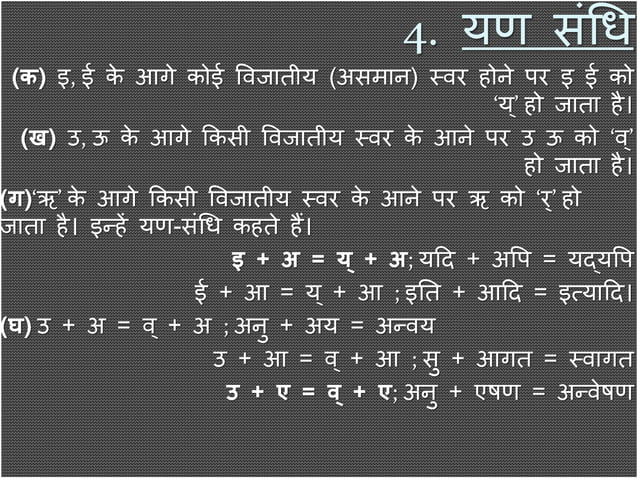 4. यण संधि
(क) इ, ई के आगे कोई विजातीय (असमान) स्वर होने पर इ ई को
‘य्’ हो जाता है।
(ख) उ, ऊ के आगे किसी विजातीय स्वर के आने पर उ ऊ को ‘व्’
हो जाता है।
(ग)‘ऋ’ के आगे किसी विजातीय स्वर के आने पर ऋ को ‘र्’ हो
जाता है। इन्हें यण-संधि कहते हैं।
इ + अ = य् + अ; यदि + अपि = यद्‌यपि
ई + आ = य् + आ ; इति + आदि = इत्यादि।
(घ) उ + अ = व् + अ ; अनु + अय = अन्वय
उ + आ = व् + आ ; सु + आगत = स्वागत
उ + ए = व् + ए; अनु + एषण = अन्वेषण